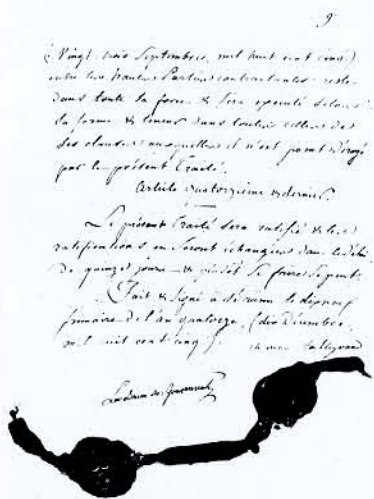 9
(Vingt trois Septembre, mil huit cent cinq)
entre les hautes Parties contractantes reste
dans toute sa force & sera executé selon
sa forme & teneur dans toutes celles de
ses clauses auxquelles il n'est point dérogé
par le présent Traité.
Article quatorzième & dernier.
Le présent Traité sera ratifié & les
ratifications en seront échangées dans le délai
De quinze jours & plutôt si faire se peut.
Fait & signé à le dix neuf
frimaire de l'an quatorze, (dix Décembre
mil huit cent cinq).
ch. mau. talleyrand